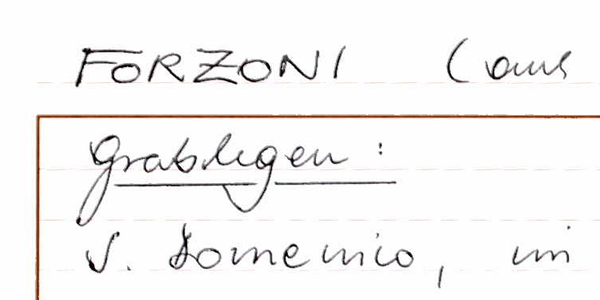 FORZONI (aus
Grablegen:
S. Domenico, im